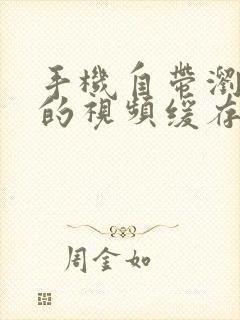 手機自帶瀏
的視頻緩存
周金如